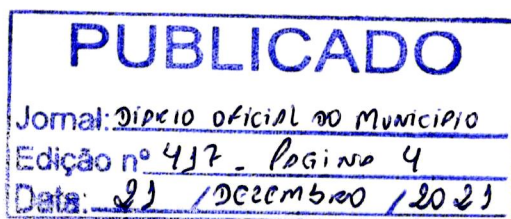 PUBLICADO
Jornal: DIÁRIO OFICIAL DO MUNICIPIO
Edição nº 417 - PAGINA 4
Data: 21 / DEZEMBRO / 2021